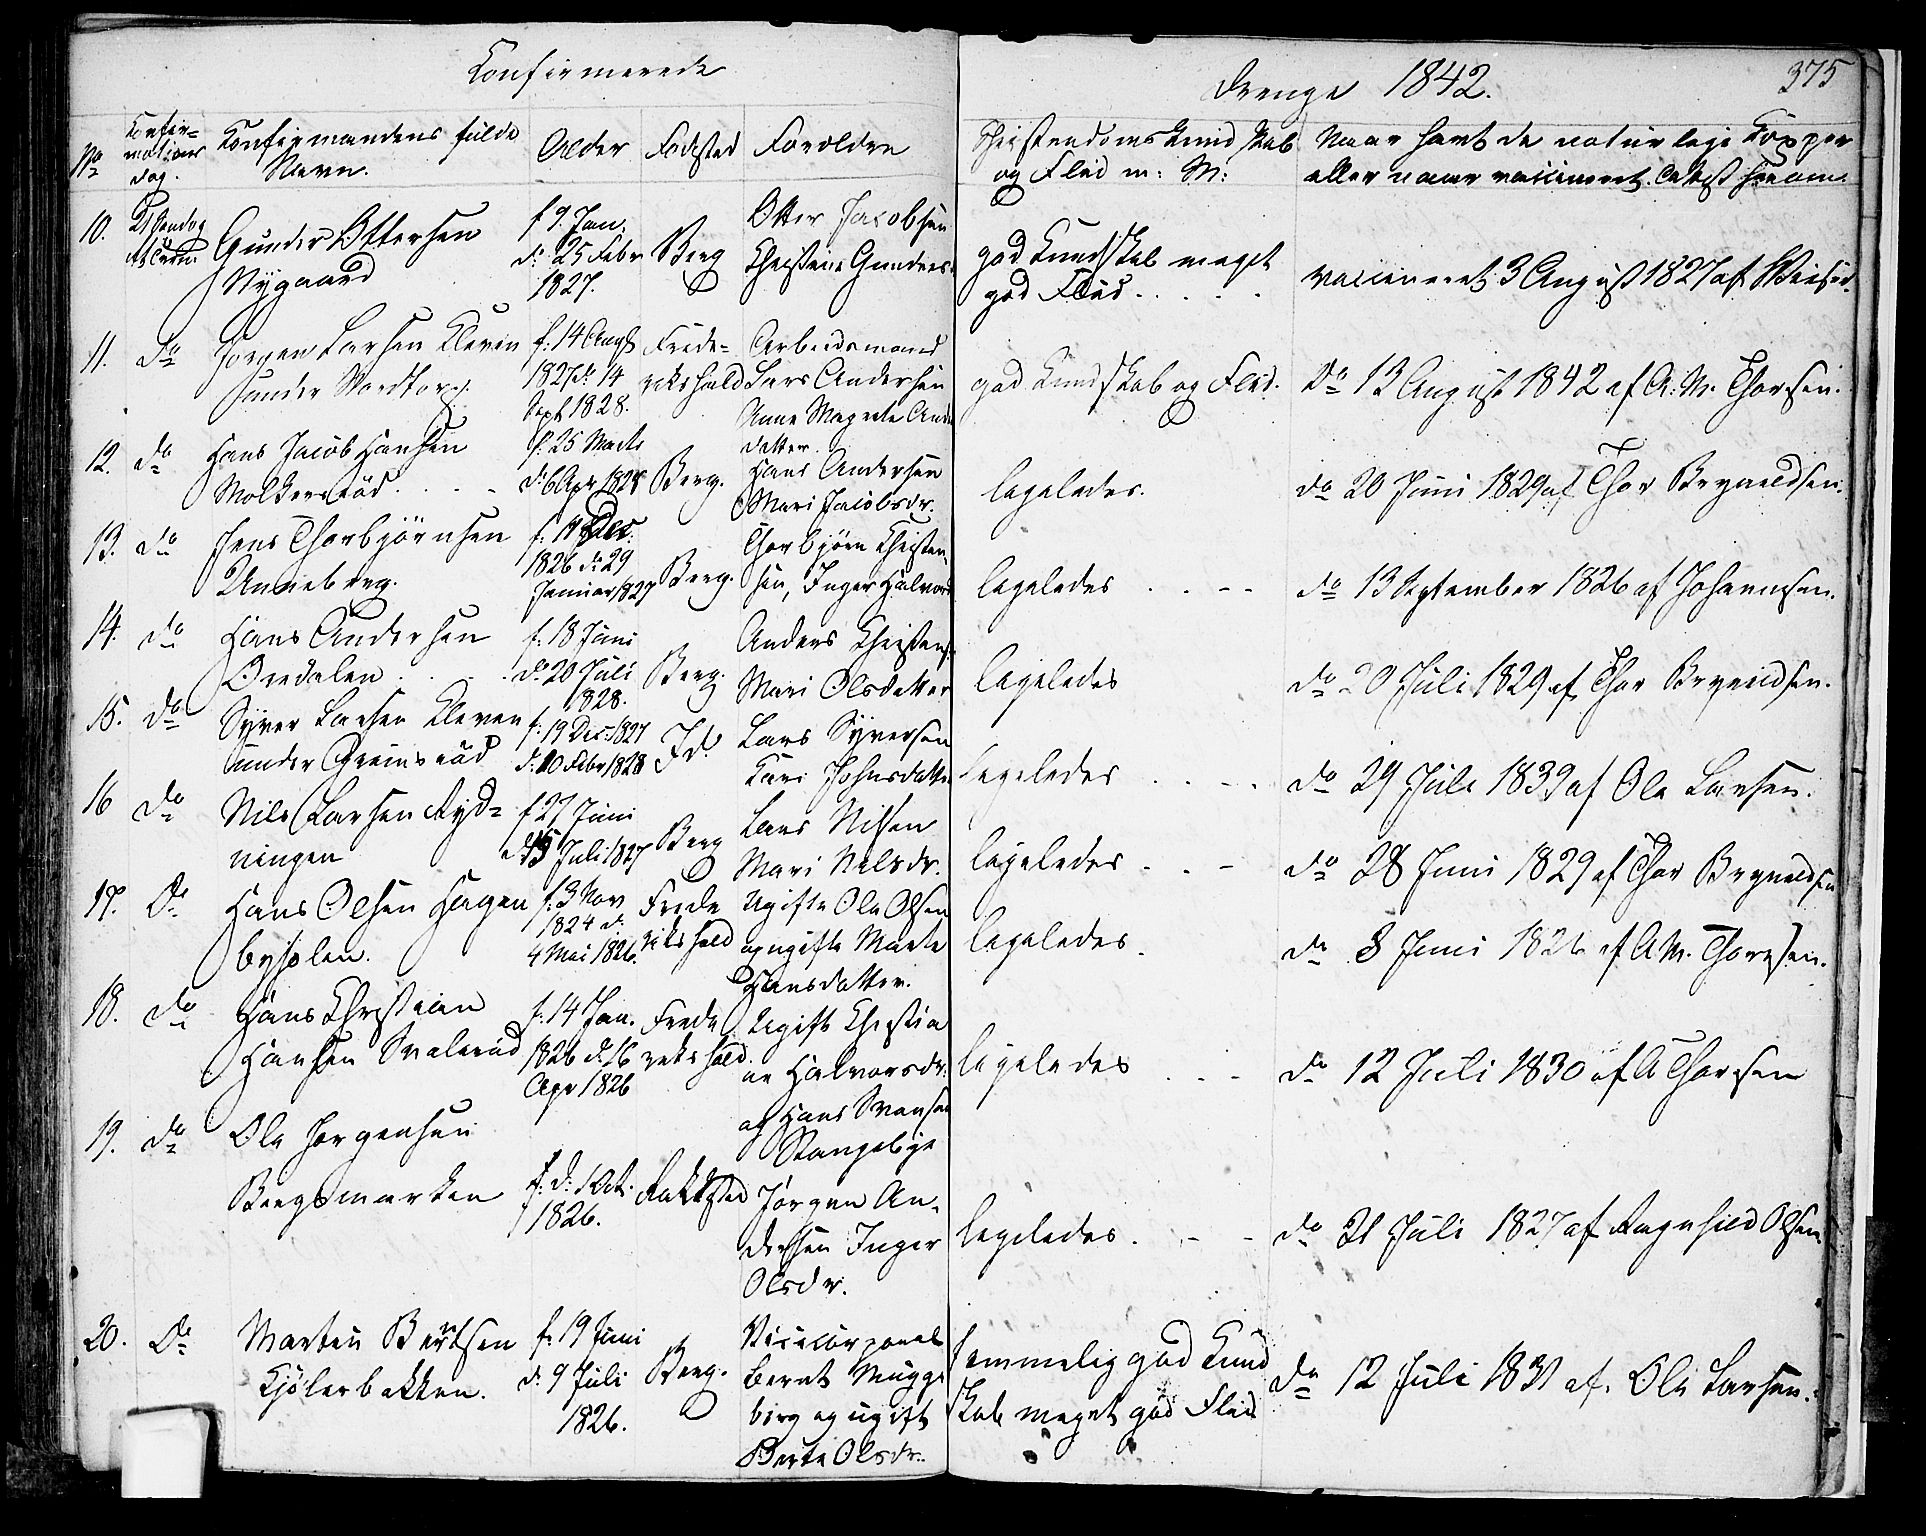 Konfirmerede
Drenge 1842.
375
No
Konfir=
mations
dag.
Konfirmandens fulde
Navn.
Alder
Fødested
Forældre
Christendoms Kundskab
og Flid m: M:
Naar havt de naturlige Kopper
eller naar vaccineret. Attest herom.
10.
21 Søndag
Gunder Ottersen
Nygaard
f 9. Jan.
d: 25 Febr
1827.
Berg
Otter Jacobsen
Christine Gunders
god Kundskab meget
god Flid . . . . .
vaccineret 3 August 1827 af
11.
do
Jørgen Larsen Kleven
under
f: 14 Augst
1827 d: 14
Sept 1828.
Frede=
rikshald
Arbeidsmand
Lars Andersen
Anne Magrete And
datter.
god Kundskab og Flid.
do 13 August 1842 af A. M. Thoresen.
12.
do
Hans Jacob Hansen
f: 25 Marts
d: 6 Apr 1828
Berg.
Hans Andersen
Mari Jacobsdr.
ligeledes.
do 20 Juni 1829 af Thor Bryneldsen.
13.
do
Jens Thorbjørnsen
Unneberg.
Dec.
1826 d: 29
Januar 1827
Berg.
Thorbjørn Christen,
sen, Inger Halvors
ligeledes . . - -
do 13 September 1826 af Johannesen.
14.
do
Hans Andersen
Ordalen . . . .
f. 18 Juni
do 20 Juli
1828.
Berg.
Anders Christens.
Mari Olsdatter
ligeledes
do 20 Juli 1829 af Thor Bryneldsen.
15.
do
Syver Larsen Kleven
under Grimsrød
f: 19 Dec: 1827
d: 10 Febr 1828
Id.
Lars Syversen
Kari Johnsdatter
ligeledes . . - .
do 29 Juli 1839 af Ole Larsen.
16
do
Nils Larsen Ryd=
ningen
f 27 Juni
d 15 Juli 1827
Berg
Lars Nilsen
Mari Nilsdr.
ligeledes . . -
do 28 Juni 1829 af Thor Bryneldsen
17.
Do
Hans Olsen Hagen
bysolen.
f. 3 Nov
1824 d.
4 Mai 1826.
Frede
rikshald
Ugifte Ole Olsen
og ugifte Marte
Hansdatter.
ligeledes.
do 8 Juni 1826 af A M. Thoresen.
18.
do
Hans Christian
Hansen Svalerød
f. 14 Jan.
1826 d. 16
Apr 1826
Frede
rikshald.
Ugift Christia
ne Halvorsdr.
af Hans Svensen
Stangebye
ligeledes . . -
do 12 Juli 1830 af A Thoresen
19.
do
Ole Jørgensen
Bergsmarken
f: d: 1 Oct.
1826.
Rakkestad
Jørgen An=
dersen Inger
Olsdr.
ligeledes . - -
do 21 Juli 1827 af Ragnhild Olsen.
20.
Do
Marten Berntsen
Kjølerbakken.
f. 19 Juni
d. 9 Juli
1826.
Berg.
Vicecorporal
Bernt Mugge
borg og ugift
Berte Olsdr.
temmelig god Kund
skab meget god Flid
do 12 Juli 1831 af. Ole Larsen.